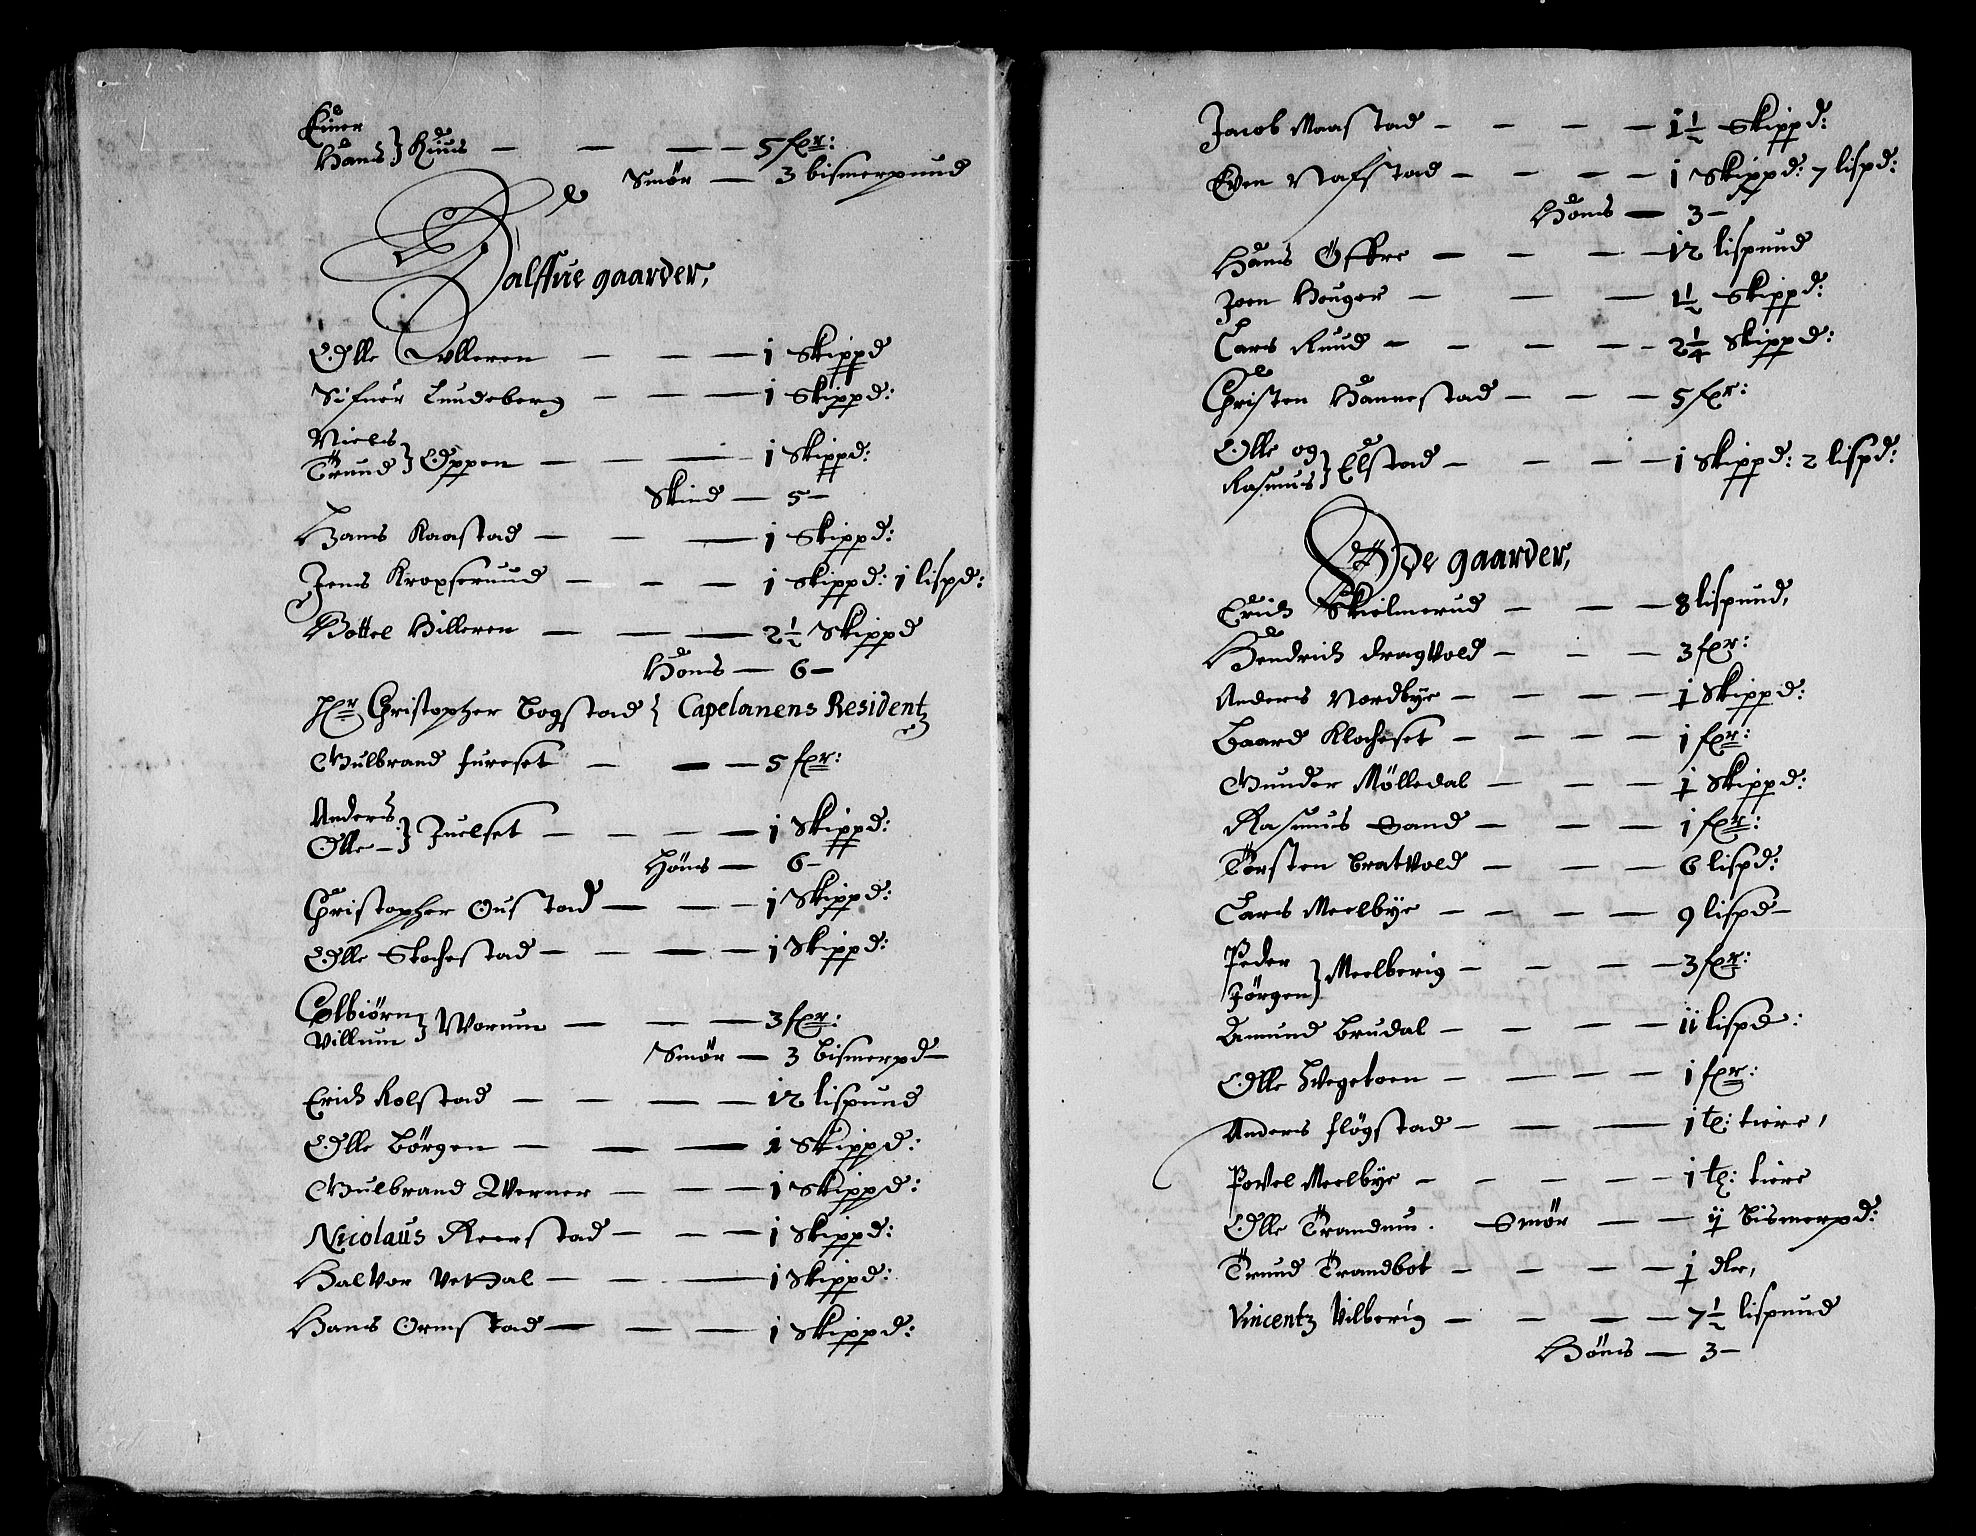 Einer
Hans } Ruus — — — 5 fxr:
Smør — 3 bismerpund
Halffue gaarder,
Olle Ulleren — — — 1 Skippd
Sifuer Lundeberg — — — 1 Skippd:
Niels
Trund } Oppen — — — 1 Skippd:
Skind — 5 —
Hans Kaastad — — — 1 Skippd:
Jens Kropserund — — — 1 Skippd: 1 lispd:
Bottel Hilleren — — — 2½ Skippd
Høns — 6 —
Hr Christopher Bogstad { Capelanens Residentz
Gulbrand fureset — — — 5 fxr:
Anders
Olle } Juelset — — — — 1 Skippd:
Høns — 6 —
Christopher Oustad — — — 1 Skippd:
Olle Stochestad — — — — 1 Skippd:
Colbiørn
Villum } Worum — — — 3 fxr:
Smør — 3 bismerpd —
Erich Rolstad — — — — 12 lispund
Olle Børgen — — — 1 Skippd:
Gulbrand Werner — — — 1 Skippd:
Nicolaus Reerstad — — — 1 Skippd:
Halvor Vethal — — — 1 Skippd:
Hans Ormstad — — — 1 Skippd:
Jacob Maastad — — — — 1½ Skippd:
Even Nafstad — — — — 1 Skippd: 7 lispd:
Høns — 3 —
Hans Øffre — — — — 12 lispund
Joen Houger — — — 1½ Skippd:
Lars Ruud — — — — — 2¼ Skippd:
Christen Hannestad — — — 5 fxr:
Olle og
Rasmus } Elstad — — — — 1 Skippd: 2 lispd:
Øde gaarder,
Erich Skielmerud — — — 8 lispund,
Hendrich dragvold — — — 3 fxr:
Anders Nordbye — — — — ½ Skippd:
Baard Klocheset — — — — 1 fxr:
Gunder Mølledal — — — ½ Skippd:
Rasmus Sand — — — 1 fxr:
Torsten bratvold — — — 6 lispd:
Lars Meelbye — — — — 9 lispd —
Peder
Jørgen } Meelberig — — — 3 fxr:
Amund Brudal — — — — 11 lispd:
Olle Hvegetoen — — — — 1 fxr:
Anders fløgstad — — — 1 tø: tiere,
Povel Meelbye — — — — — 1 tø: tiere
Olle Trandum. Smør — — ij bismerpd:
Trund Trandbot — — — — ½ dlr,
Vincentz Vilberig — — — — 7½ lispund
Høns — 3 —